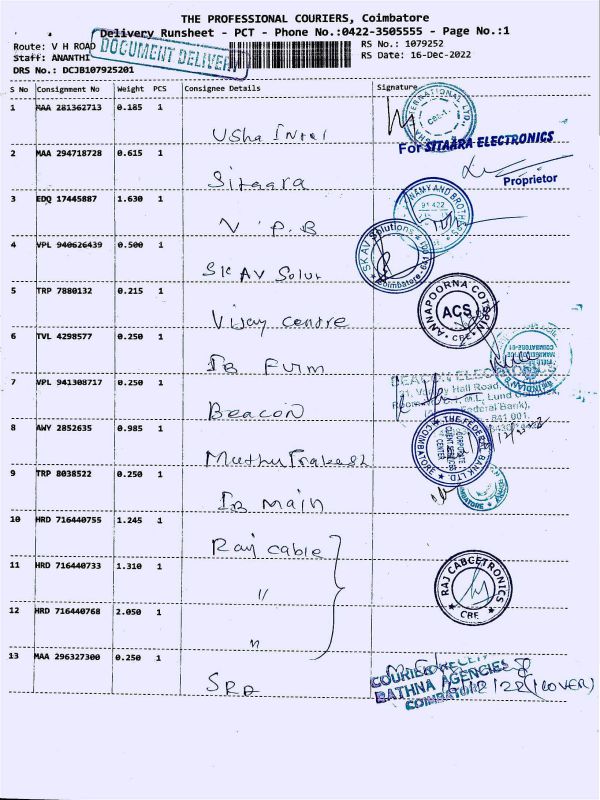 THE PROFESSIONAL COURIERS, Coimbatore
Delivery Runsheet - PCT - Phone No.:0422-3505555 - Page No.:1
Route: V H ROAD
RS No.: 1079252
Staff: ANANTHI
RS Date: 16-Dec-2022
DRS No.: DCJB107925201
DOCUMENT DELIVERY
S No Consignment No Weight PCS Consignee Details Signature
1 MAA 281362713 0.185 1
Usha Intel
For SITAARA ELECTRONICS
2 MAA 294718728 0.615 1
Sitaara
Proprietor
3 EDQ 17445887 1.630 1
V.P.B
4 VPL 940626439 0.500 1
SKAV Solut
SKAV Solutions
Coimbatore-641
5 TRP 7880132 0.215 1
Vijay centre
ANNAPOORNA
ACS
CBE
6 TVL 4298577 0.250 1
IB Furm
7 VPL 941308717 0.250 1
Beacon
Hall Road,
Federal Bank),
8 AWY 2852635 0.985 1
Muthu Prakash
THE FEDERAL BANK LTD
COIMBATORE
CORPORATE
CENTER
9 TRP 8038522 0.250 1
IB main
10 HRD 716440755 1.245 1
Raj cable
11 HRD 716440733 1.310 1
"
RAJ CABCETRONICS
CBE
12 HRD 716440768 2.050 1
"
13 MAA 296327300 0.250 1
BATHNA AGENCIES
COIMBATORE
(COVER)